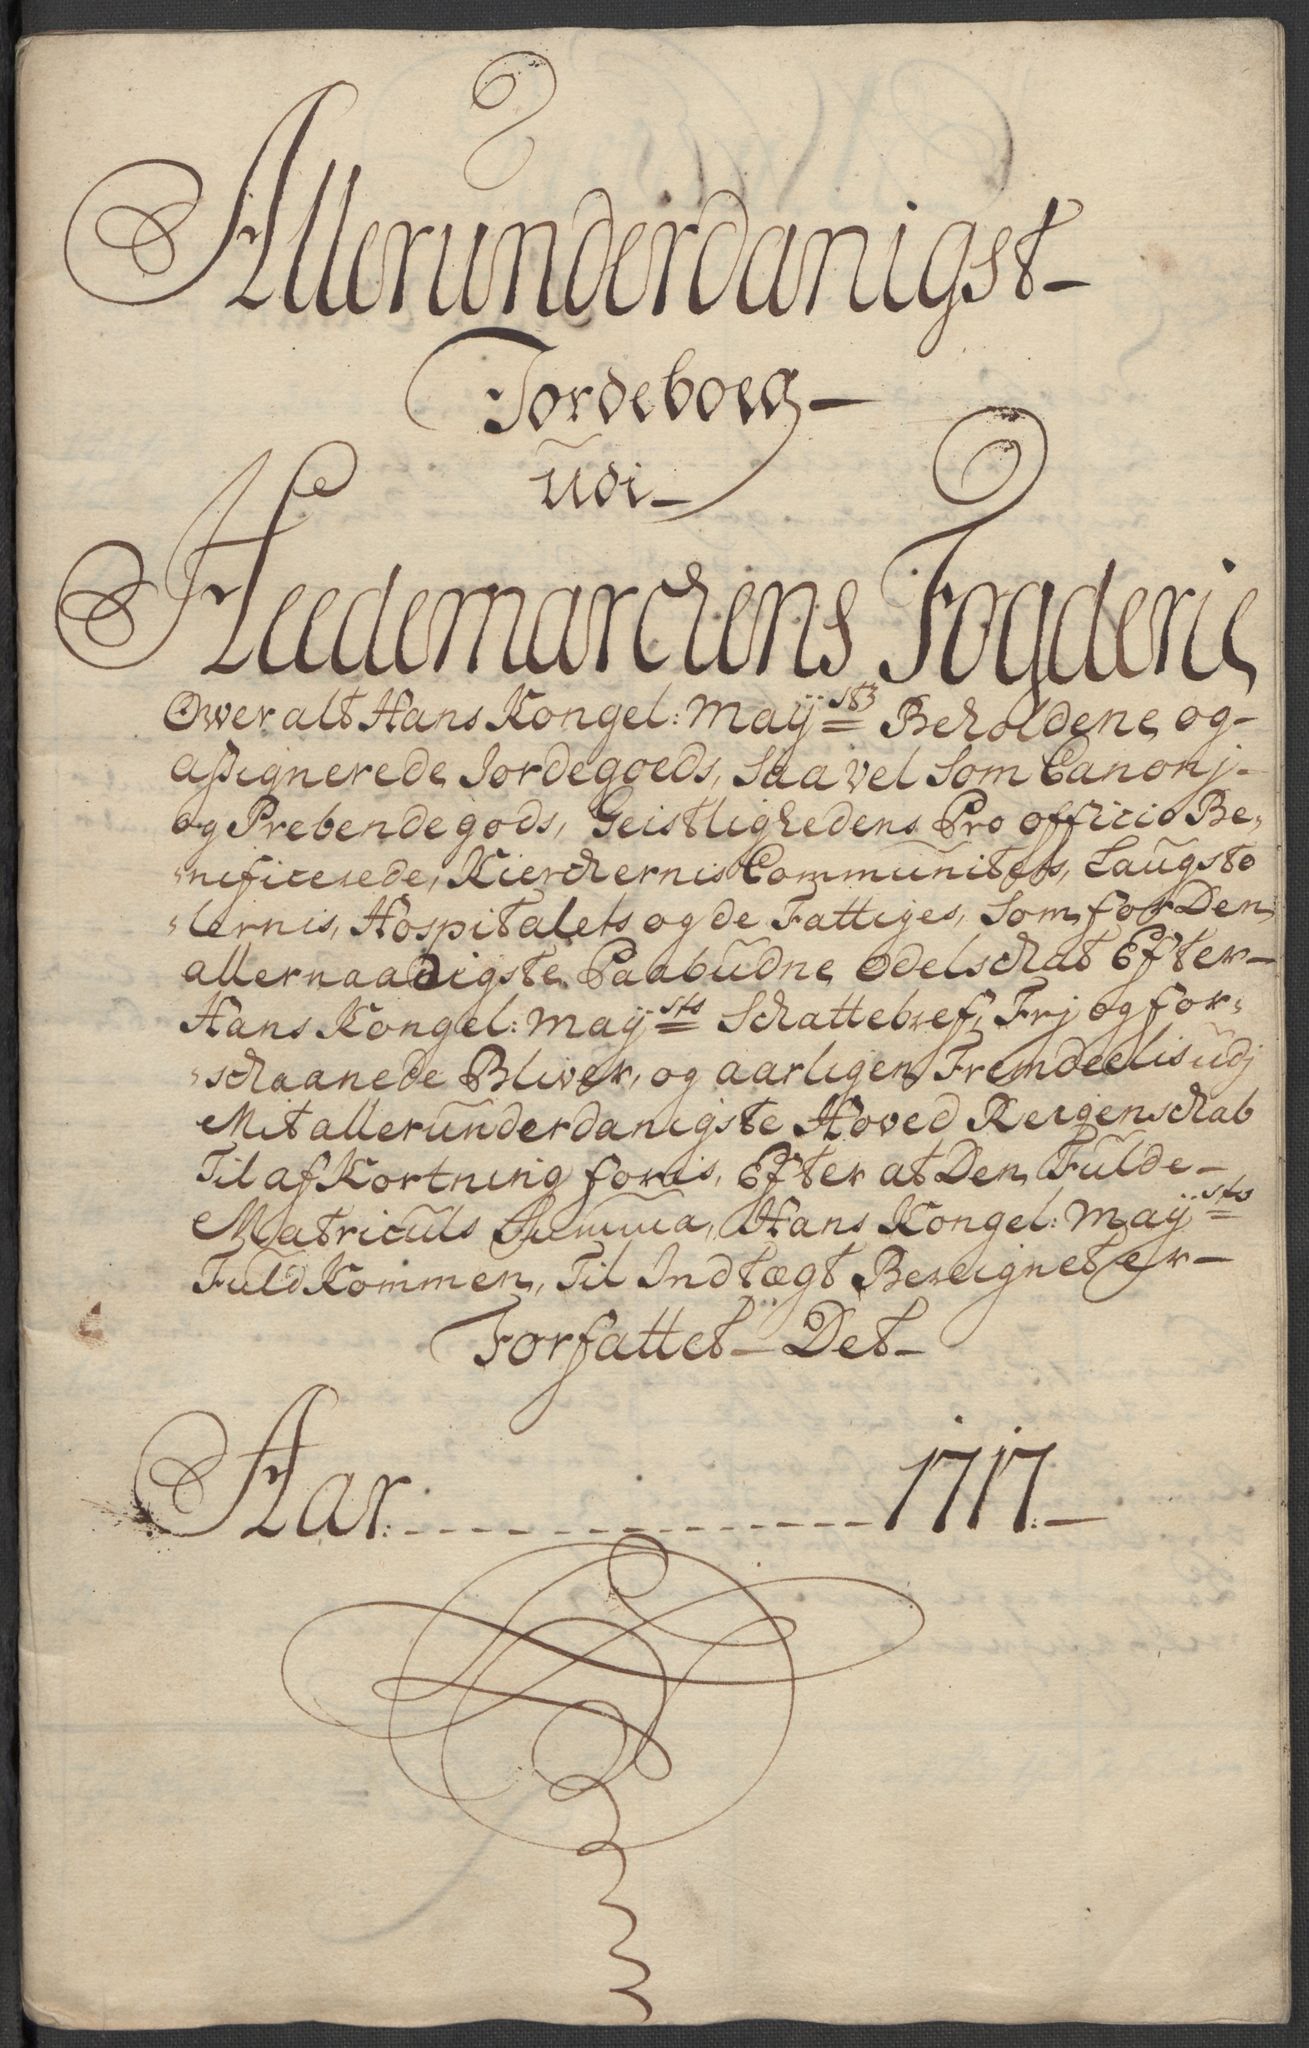 Allerunderdanigst
Jordeboeg
udi
Heedemarchens Fogderie
Over alt Hans Kongel: May:sts Beholdene og
assignerede Jordegoeds, Saa vel Som Canonj-
og Prebendegods, Geistlighedens Pro officio Be-
nificerede, Kierchernis Communitets, Laugsto
lernis, Hospitalets og de Fattiges, Som for Den
allernaadigste Paabudne Odelschat Efter
Hans Kongel: May:sts Schattebref, Frj og for-
schaanede Bliver, og aarligen Fremdeelis udj
Mit allerunderdanigste Hoved Reigenschab
Til af Kortning føris, Efter at Den Fulde
Matriculs Summa, Hans Kongel: May:sts
Fuld Kommen, Til Indtægt Bereignet er
Forfattet Det
Aar: 1717: